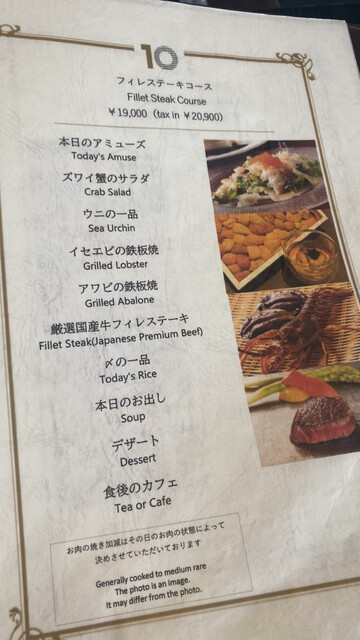 10
フィレステーキコース
Fillet Steak Course
￥19,000（tax in ￥20,900）
本日のアミューズ
Today's Amuse
ズワイ蟹のサラダ
Crab Salad
ウニの一品
Sea Urchin
イセエビの鉄板焼
Grilled Lobster
アワビの鉄板焼
Grilled Abalone
厳選国産牛フィレステーキ
Fillet Steak(Japanese Premium Beef)
〆の一品
Today's Rice
本日のお出し
Soup
デザート
Dessert
食後のカフェ
Tea or Cafe
お肉の焼き加減はその日のお肉の状態によって
決めさせていただいております
Generally cooked to medium rare
The photo is an image.
It may differ from the photo.